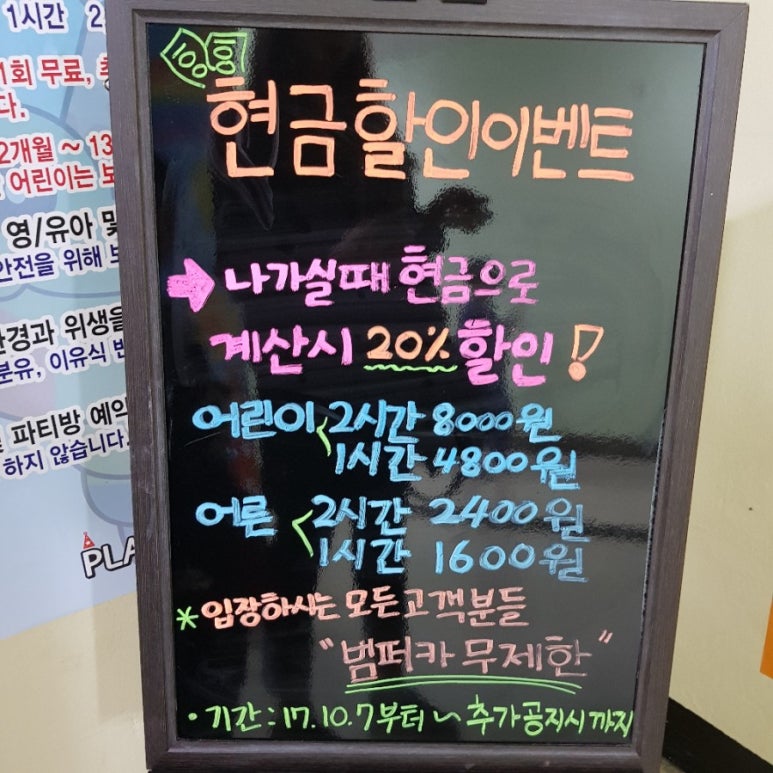 1시간 2
1회 무료,
다.
2개월 ~ 13
어린이는 보
영/유아 및
안전을 위해 보
환경과 위생을
분유, 이유식 반
파티방 예약
하지 않습니다.
PLA
현금할인이벤트
→ 나가실때 현금으로
계산시 20% 할인!
어린이 < 2시간 8000원
1시간 4800원
어른 < 2시간 2400원
1시간 1600원
* 입장하시는 모든고객분들
"범퍼카 무제한"
• 기간 : 17.10.7부터 ~ 추가공지시까지